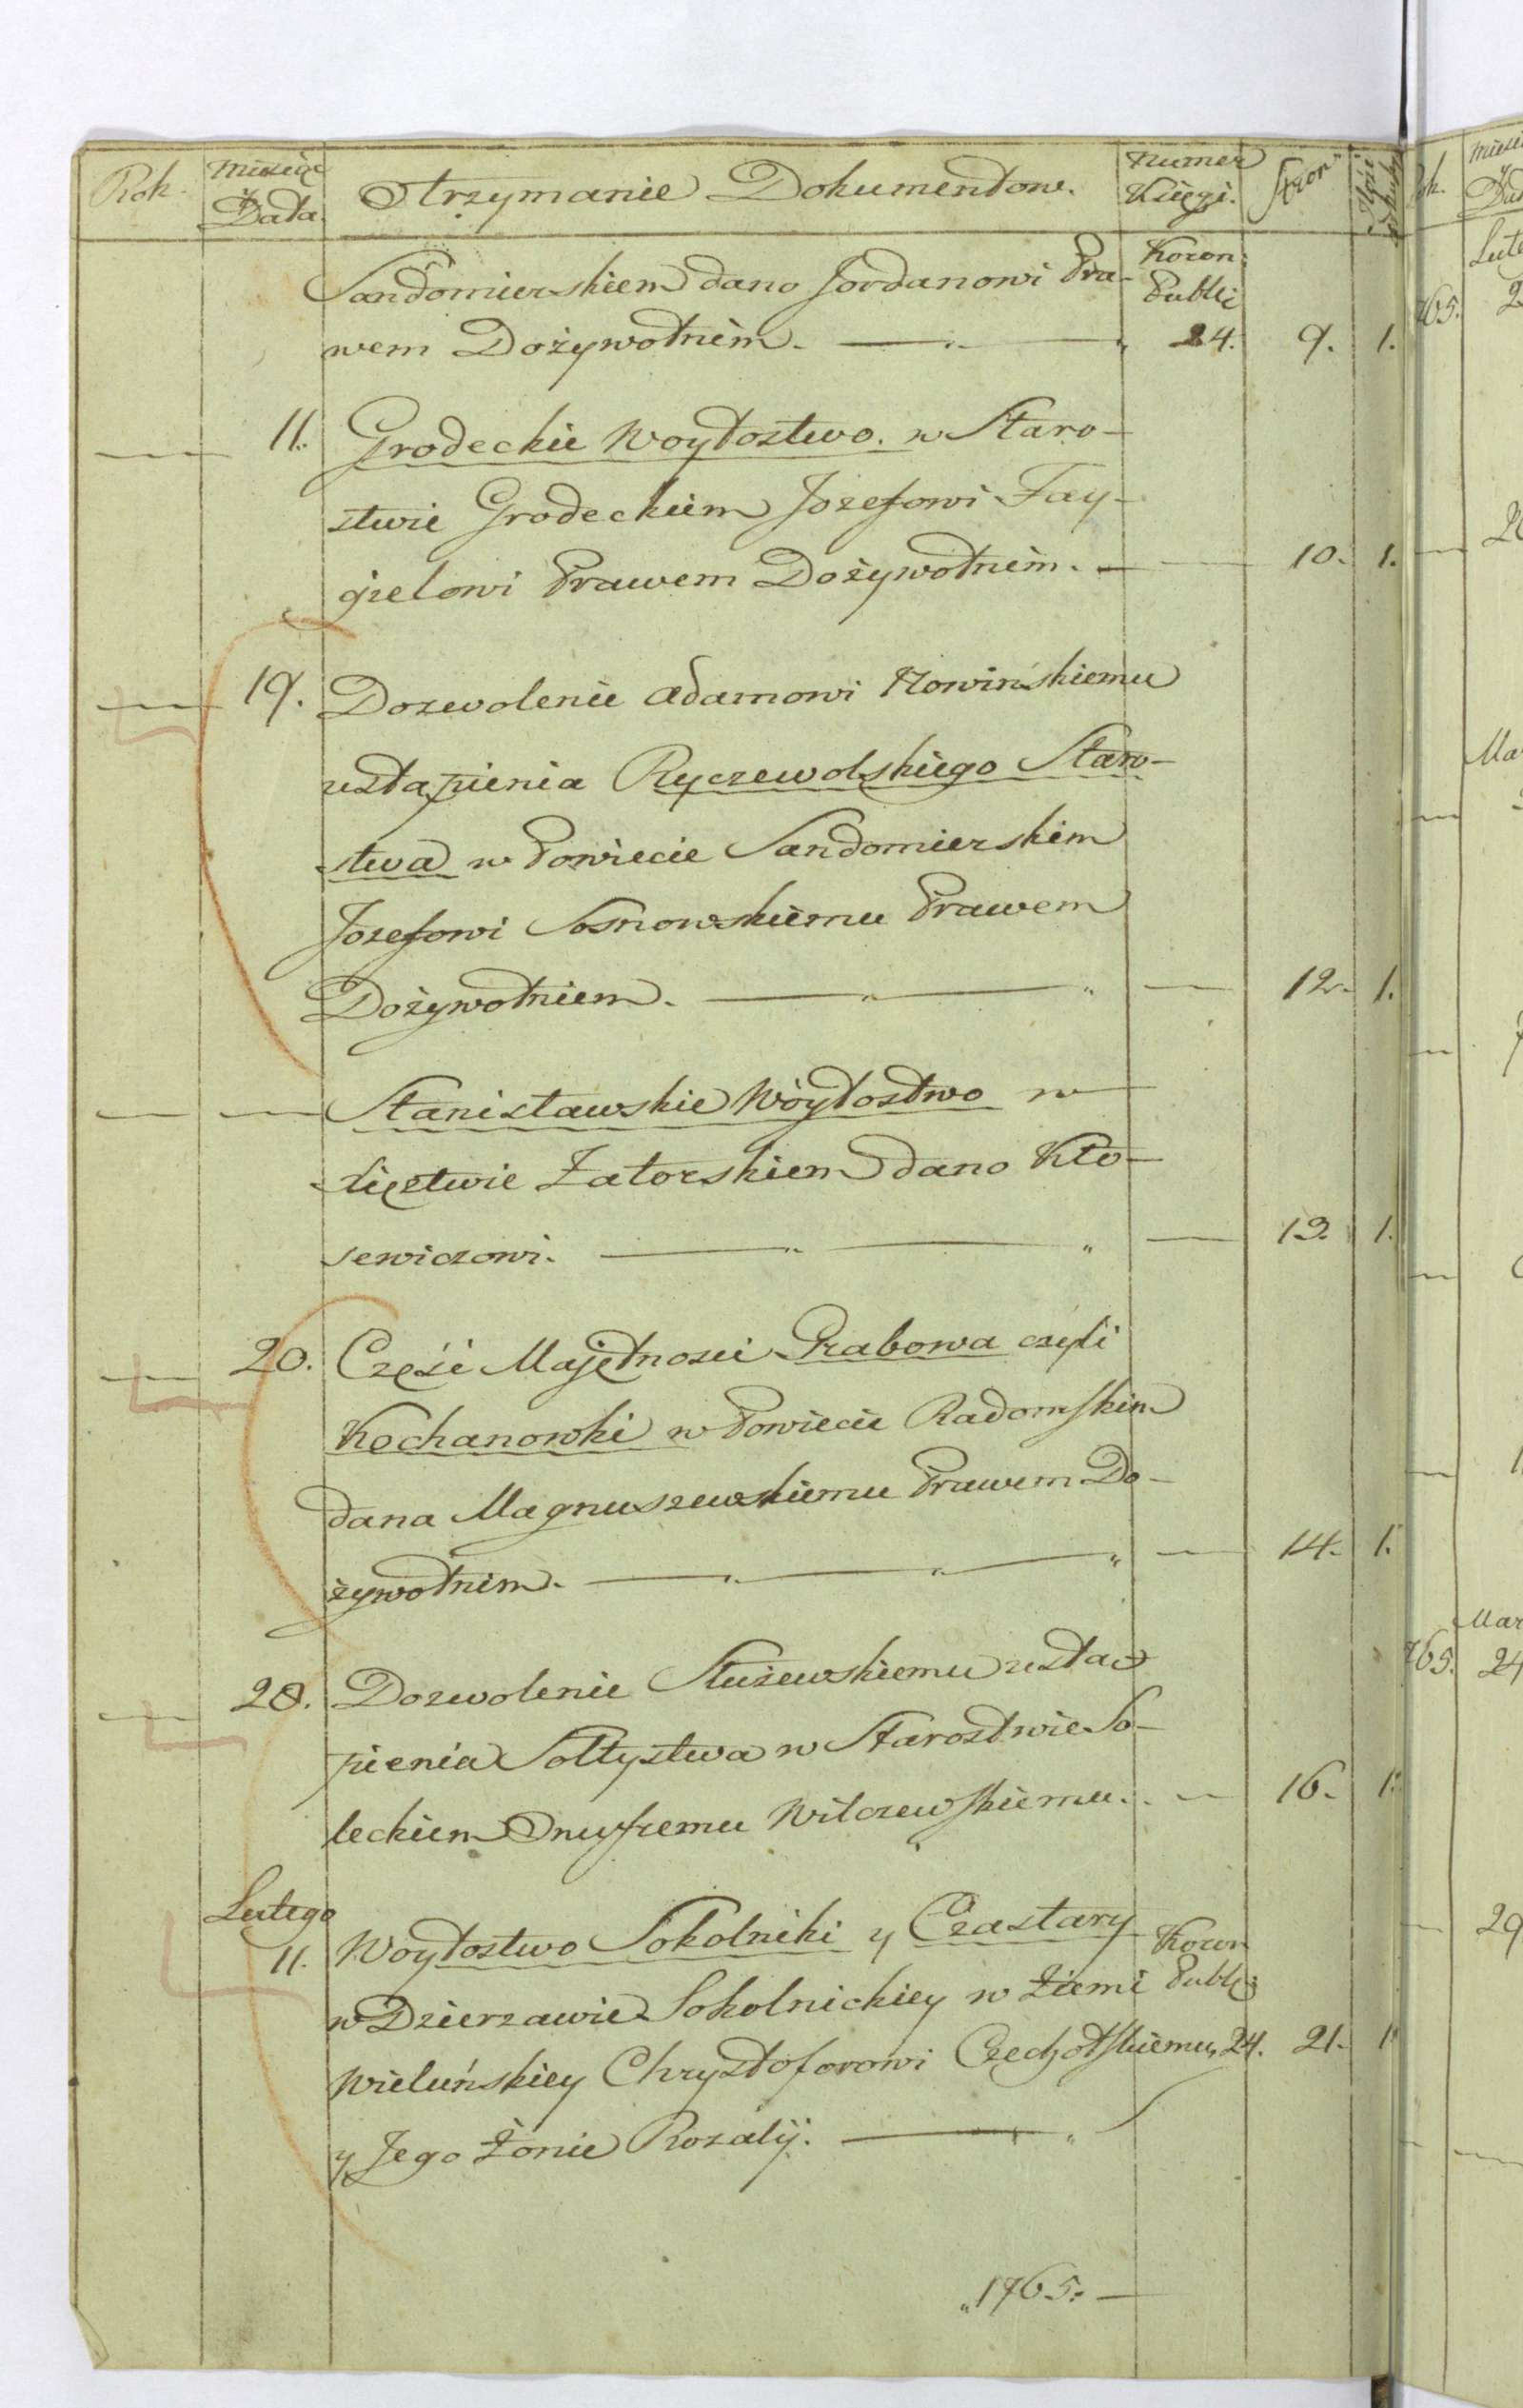 Rok. Miesiąc y Data. Otrzymanie Dokumentow. Numer Księgi. Stron
Sandomierskiem dano Jordanowi Pra- Koron: Publ:
wem Dożywotnim. 24. 9. 1.
11. Grodeckie Woytostwo. w Staro-
stwie Grodeckiem Jozefowi Fay-
gielowi Prawem Dożywotnim. 10. 1.
19. Dozwolenie Adamowi Nowińskiemu
ustąpienia Ryczewolskiego Staro-
stwa w Powiecie Sandomierskim
Jozefowi Sosnowskiemu Prawem
Dożywotniem. 12. 1.
Stanisławskie Wóytostwo w
Xięstwie Zatorskiem dano Kło-
sewiczowi. 13. 1.
20. Część Majętnosci Grabowa czyli
Kochanowki w Powiecie Radomskim
dana Magnuszewskiemu Prawem Do-
żywotnim. 14. 1.
20. Dozwolenie Służewskiemu ustą-
pienia Sołtystwa w Starostwie So-
leckiem Onufremu Wilczewskiemu. 16. 1.
Lutego
11. Woytostwo Sokolniki y Czastary Koron
w Dzierzawie Sokolnickiey w Ziemi Publ:
Wieluńskiey Chrysztoforowi Czechotskiemu 24. 21. 1
y Jego Żonie Rozalij.
1765.
Rok. Miesi
Dat
Lute
765. 2
Ma
Mar
765. 24
29